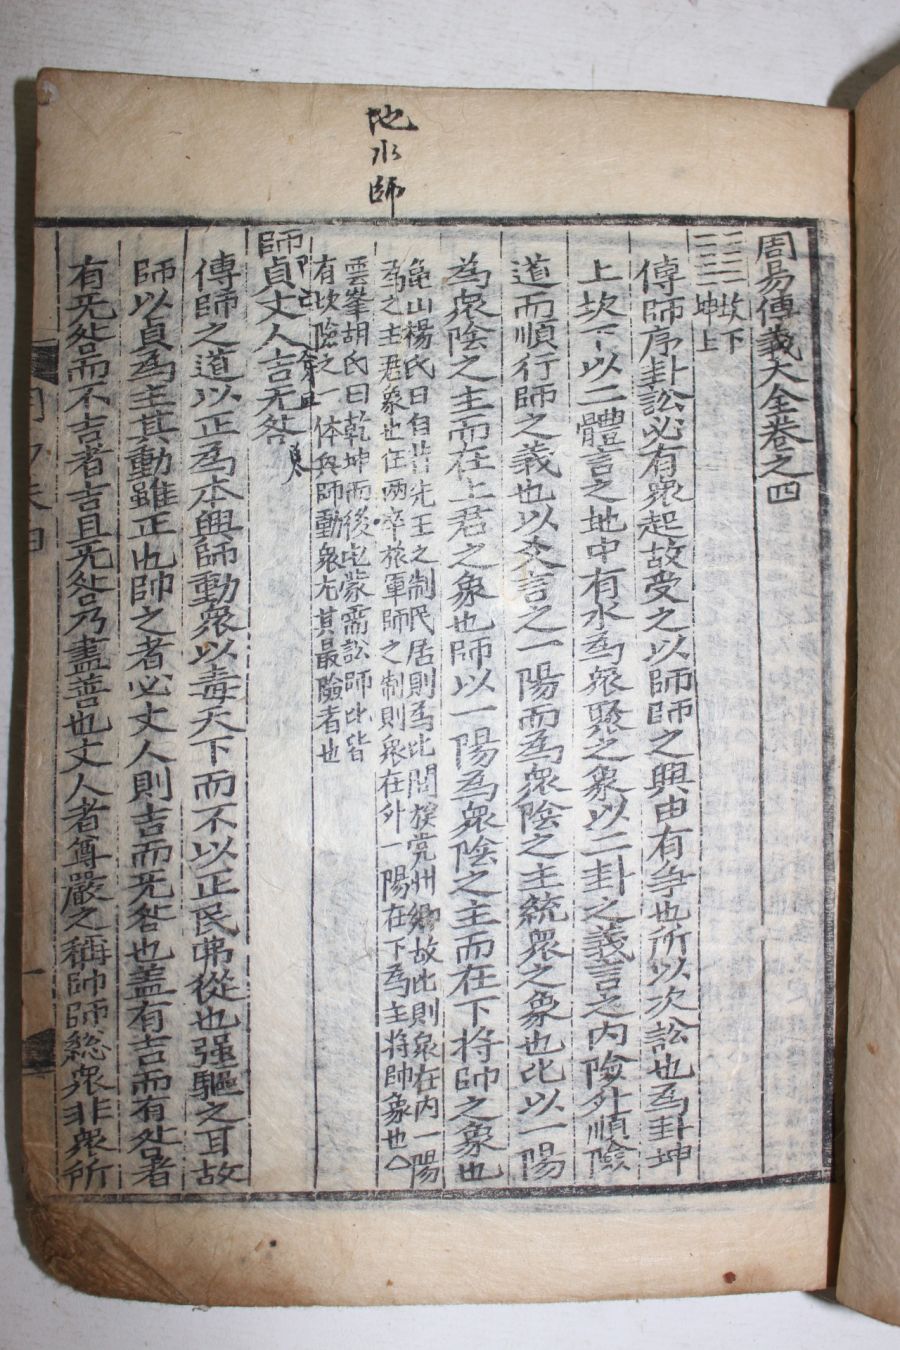 地水師
周易傳義大全卷之四
坎下
坤上
傳師序卦訟必有衆起故受之以師師之興由有爭也所以次訟也爲卦坤
上坎下以二體言之地中有水爲衆聚之象以二卦之義言之内險外順險
道而順行師之義也以爻言之一陽而爲衆陰之主統衆之象也比以一陽
爲衆陰之主而在上君之象也師以一陽爲衆陰之主而在下將帥之象也
龜山楊氏曰自昔先王之制民居則爲比閭族黨州鄉故比則衆在内一陽
爲之主君象也在兩卒旅軍師之制則衆在外一陽在下爲主將帥象也△
雲峯胡氏曰乾坤而後屯蒙需訟師比皆
有坎險之一体與師動衆尤其最險者也
師貞丈人吉无咎
傳師之道以正爲本興師動衆以毒天下而不以正民弗從也强驅之耳故
師以貞爲主其動雖正也帥之者必丈人則吉而无咎也盖有吉而有咎者
有无咎而不吉者吉且无咎乃盡善也丈人者尊嚴之稱帥師總衆非衆所